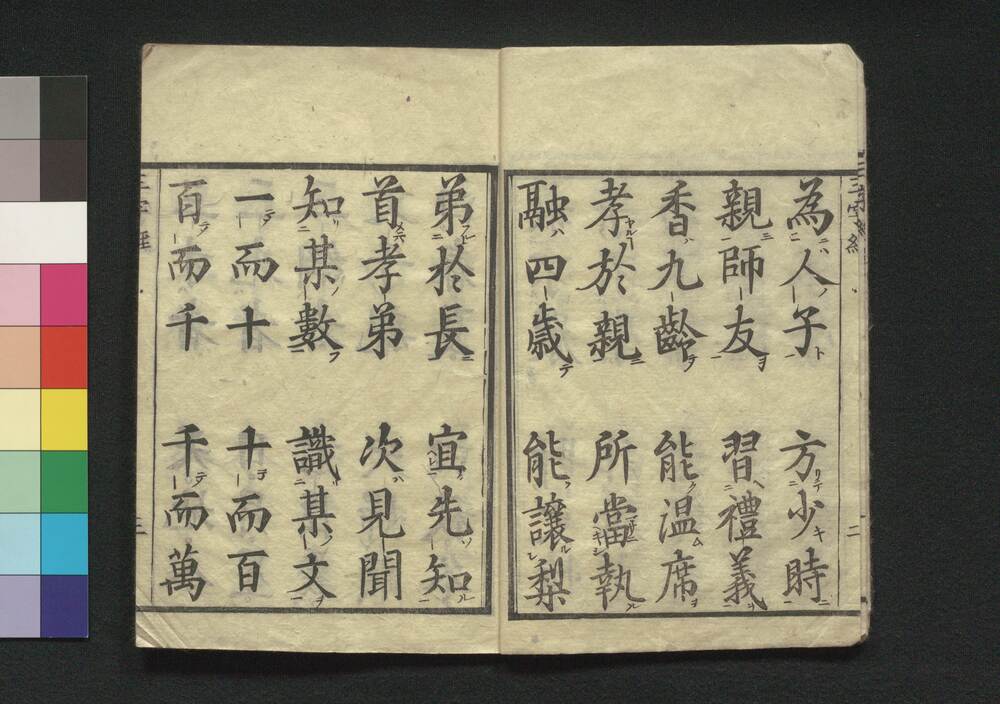 為人子 方少時
親師友 習禮義
香九齡 能温席
孝於親 所當執
融四歳 能讓梨
二
弟於長 宜先知
首孝弟 次見聞
知某數 識某文
一而十 十而百
百而千 千而萬
三字經